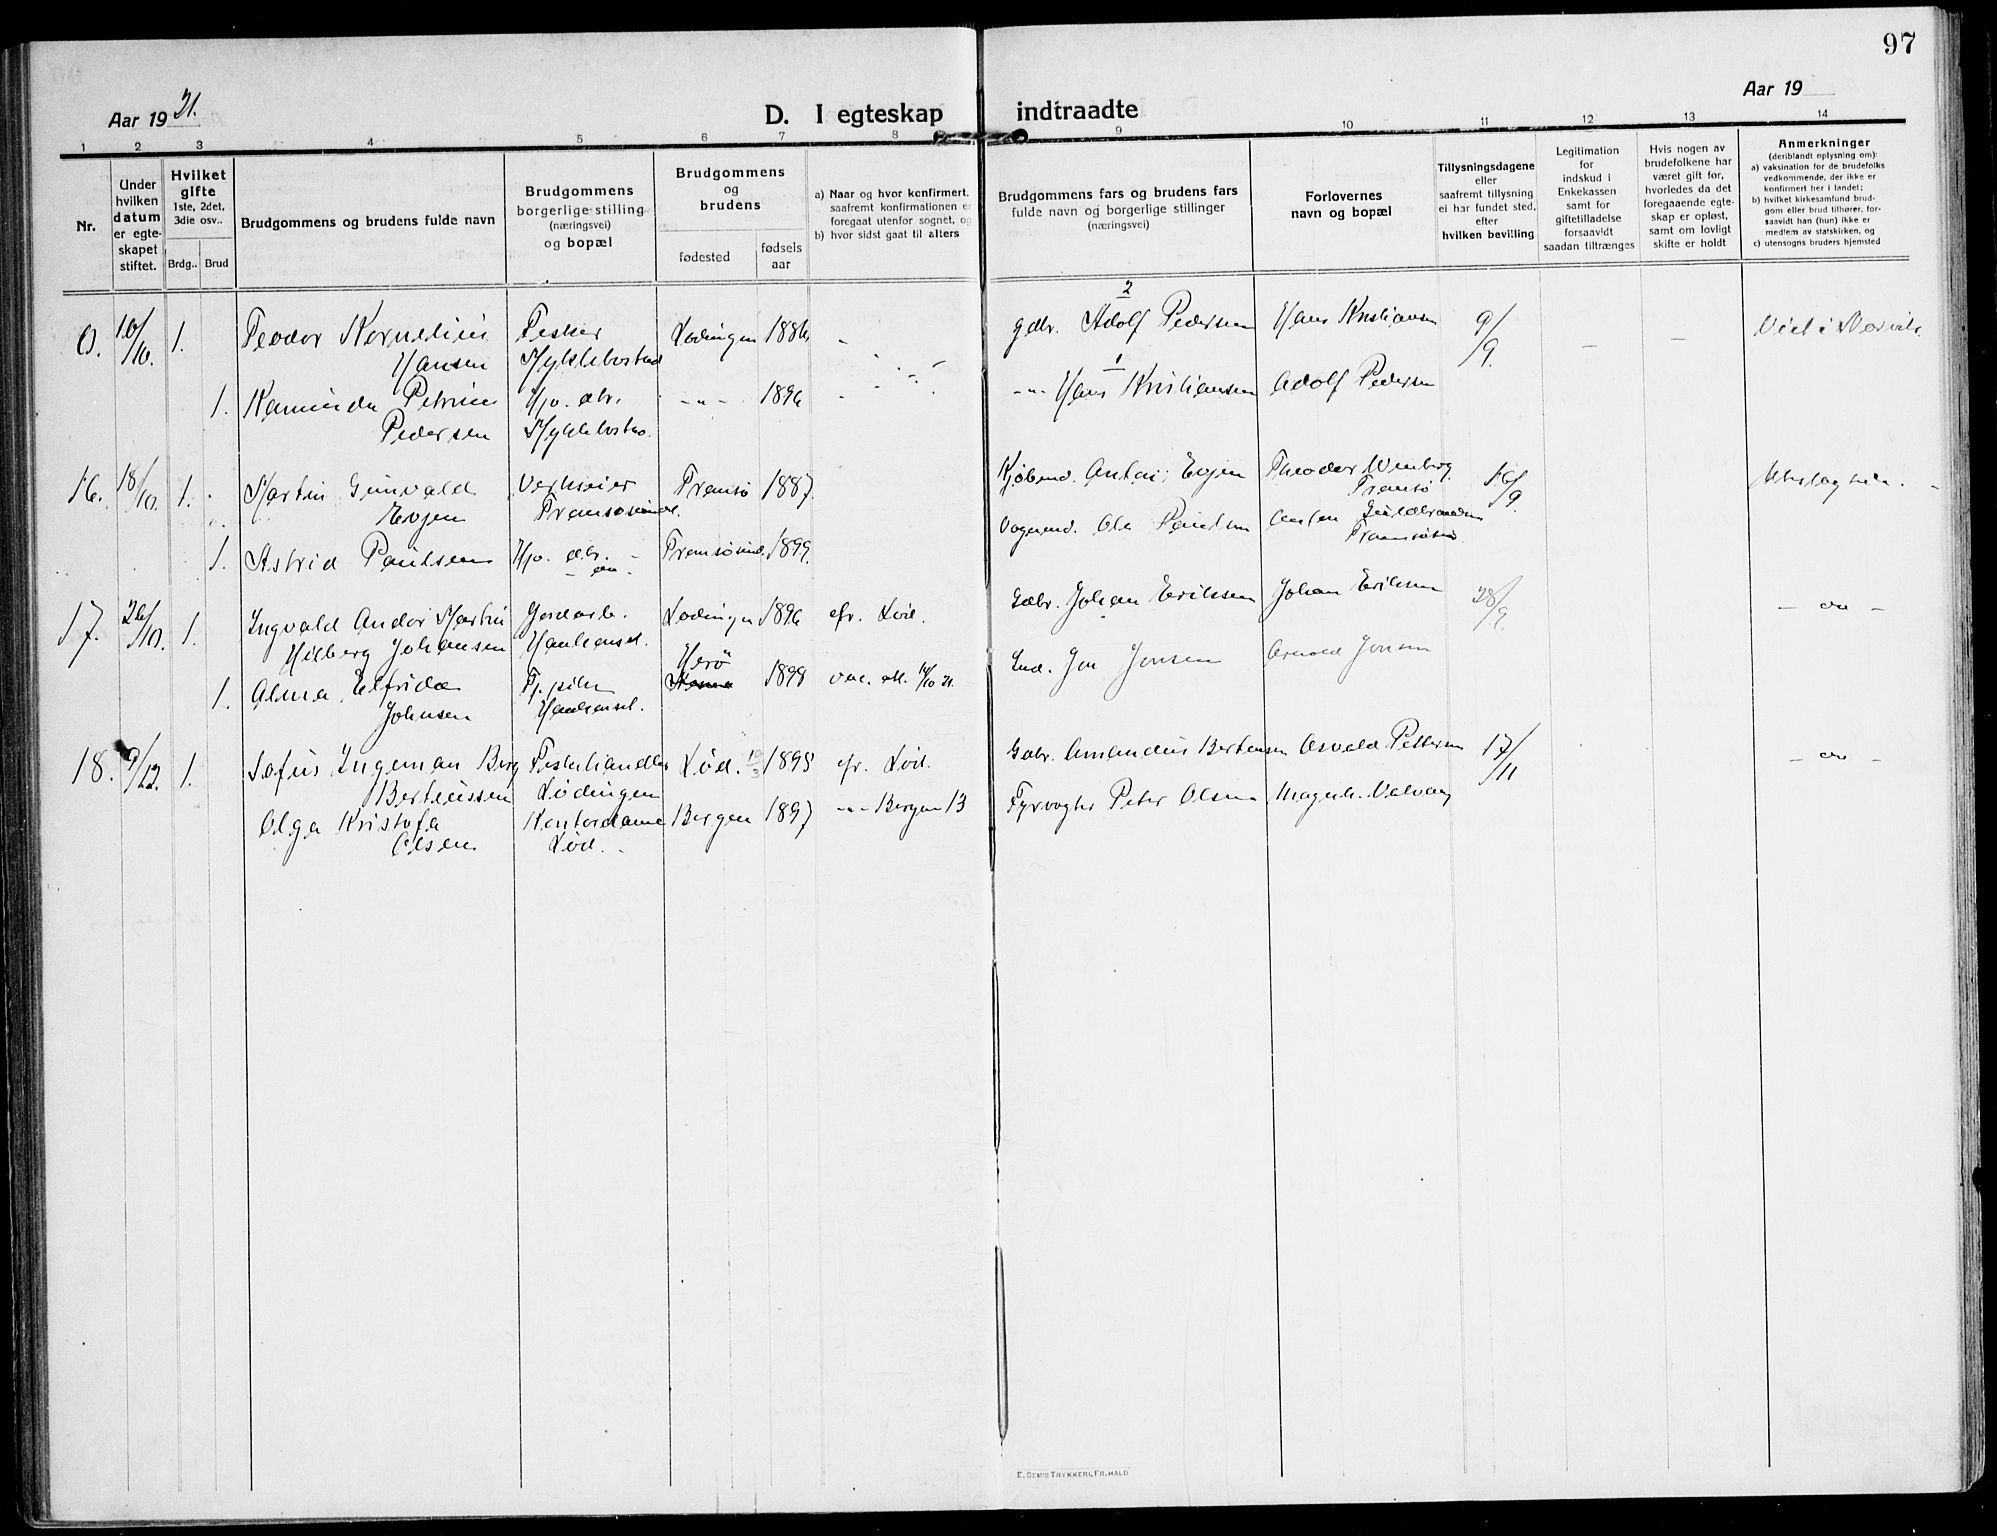 97
Aar 19 21.
Aar 19
D. I egteskap indtraadte
1 2 3 4 5 6 7 8 9 10 11 12 13 14
Nr.
Under hvilken datum er egte-skapet stiftet.
Hvilket gifte 1ste, 2det, 3die osv..
Brdg..
Brud
Brudgommens og brudens fulde navn
Brudgommens borgerlige stilling (næringsvei) og bopæl
Brudgommens og brudens
fødested
fødsels aar
a) Naar og hvor konfirmert, saafremt konfirmationen er foregaat utenfor sognet, og
b) hvor sidst gaat til alters
Brudgommens fars og brudens fars fulde navn og borgerlige stillinger (næringsvei)
Forlovernes navn og bopæl
Tillysningsdagene eller saafremt tillysning ei har fundet sted, efter hvilken bevilling
Legitimation for indskud i Enkekassen samt for giftetilladelse forsaavidt saadan tiltrænges
Hvis nogen av brudefolkene har været gift før, hvorledes da det foregaaende egte-skap er opløst, samt om lovligt skifte er holdt
Anmerkninger
(deriblandt oplysning om):
a) vaksination for de brudefolks vedkommende, der ikke er konfirmert her i landet;
b) hvilket kirkesamfund brud-gom eller brud tilhører, for-saavidt han (hun) ikke er medlem av statskirken, og
c) utensogns bruders hjemsted
0. 16/10. 1. Teodor Kornelius Fisker Lødingen 1886 - 2 gdbr. Adolf Pedersen Hans Kristiansen 9/9. - - Viet i Narvik.
Hansen Myklebostad
1. Kaminda Petrine Hjv. dtr. -"- 1896 - 1 -"- Hans Kristiansen Adolf Pedersen
Pedersen Myklebostad.
16. 18/10. 1. Martin Gunvald Verkseier Tromsø 1887. Kjøbmd. Anton Evjen Theodor Wenberg 16/9.
Evjen Tromsøsund. Tromsø
Vognmd. Ole Paulsen
1. Astrid Paulsen Hjv. dtr. - Tromsøsund. 1899. Tromsø
17. 26/10. 1. Ingvald Andor Martin Jordarb. Lødingen 1896 efr. Lød. Gdbr. Johan Eriksen Johan Eriksen 28/9. - do -
Hilberg Johansen
1. Alma Elfrida Herø 1898 vac. att. 14/10 21. Ind. Jon Jonsen Arnold Jonsen
Johnsen
18. 9/12. 1. Sofus Ingeman Berg Fiskehandler Lød. 19/3 1895 efr. Lød. Gdbr. Amandus Bertensen Osvald Pettersen 17/11 - do -
Berteussen Lødingen
Olga Kristofa Kontordame Bergen 1897 -"- Bergen 13 Fyrvogter Peter Olsen
Olsen Lød.
E. SEM'S TRYKKERI, FR. HALD